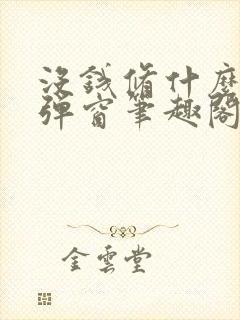 没钱修什么
弹窗笔趣阁
金云堂